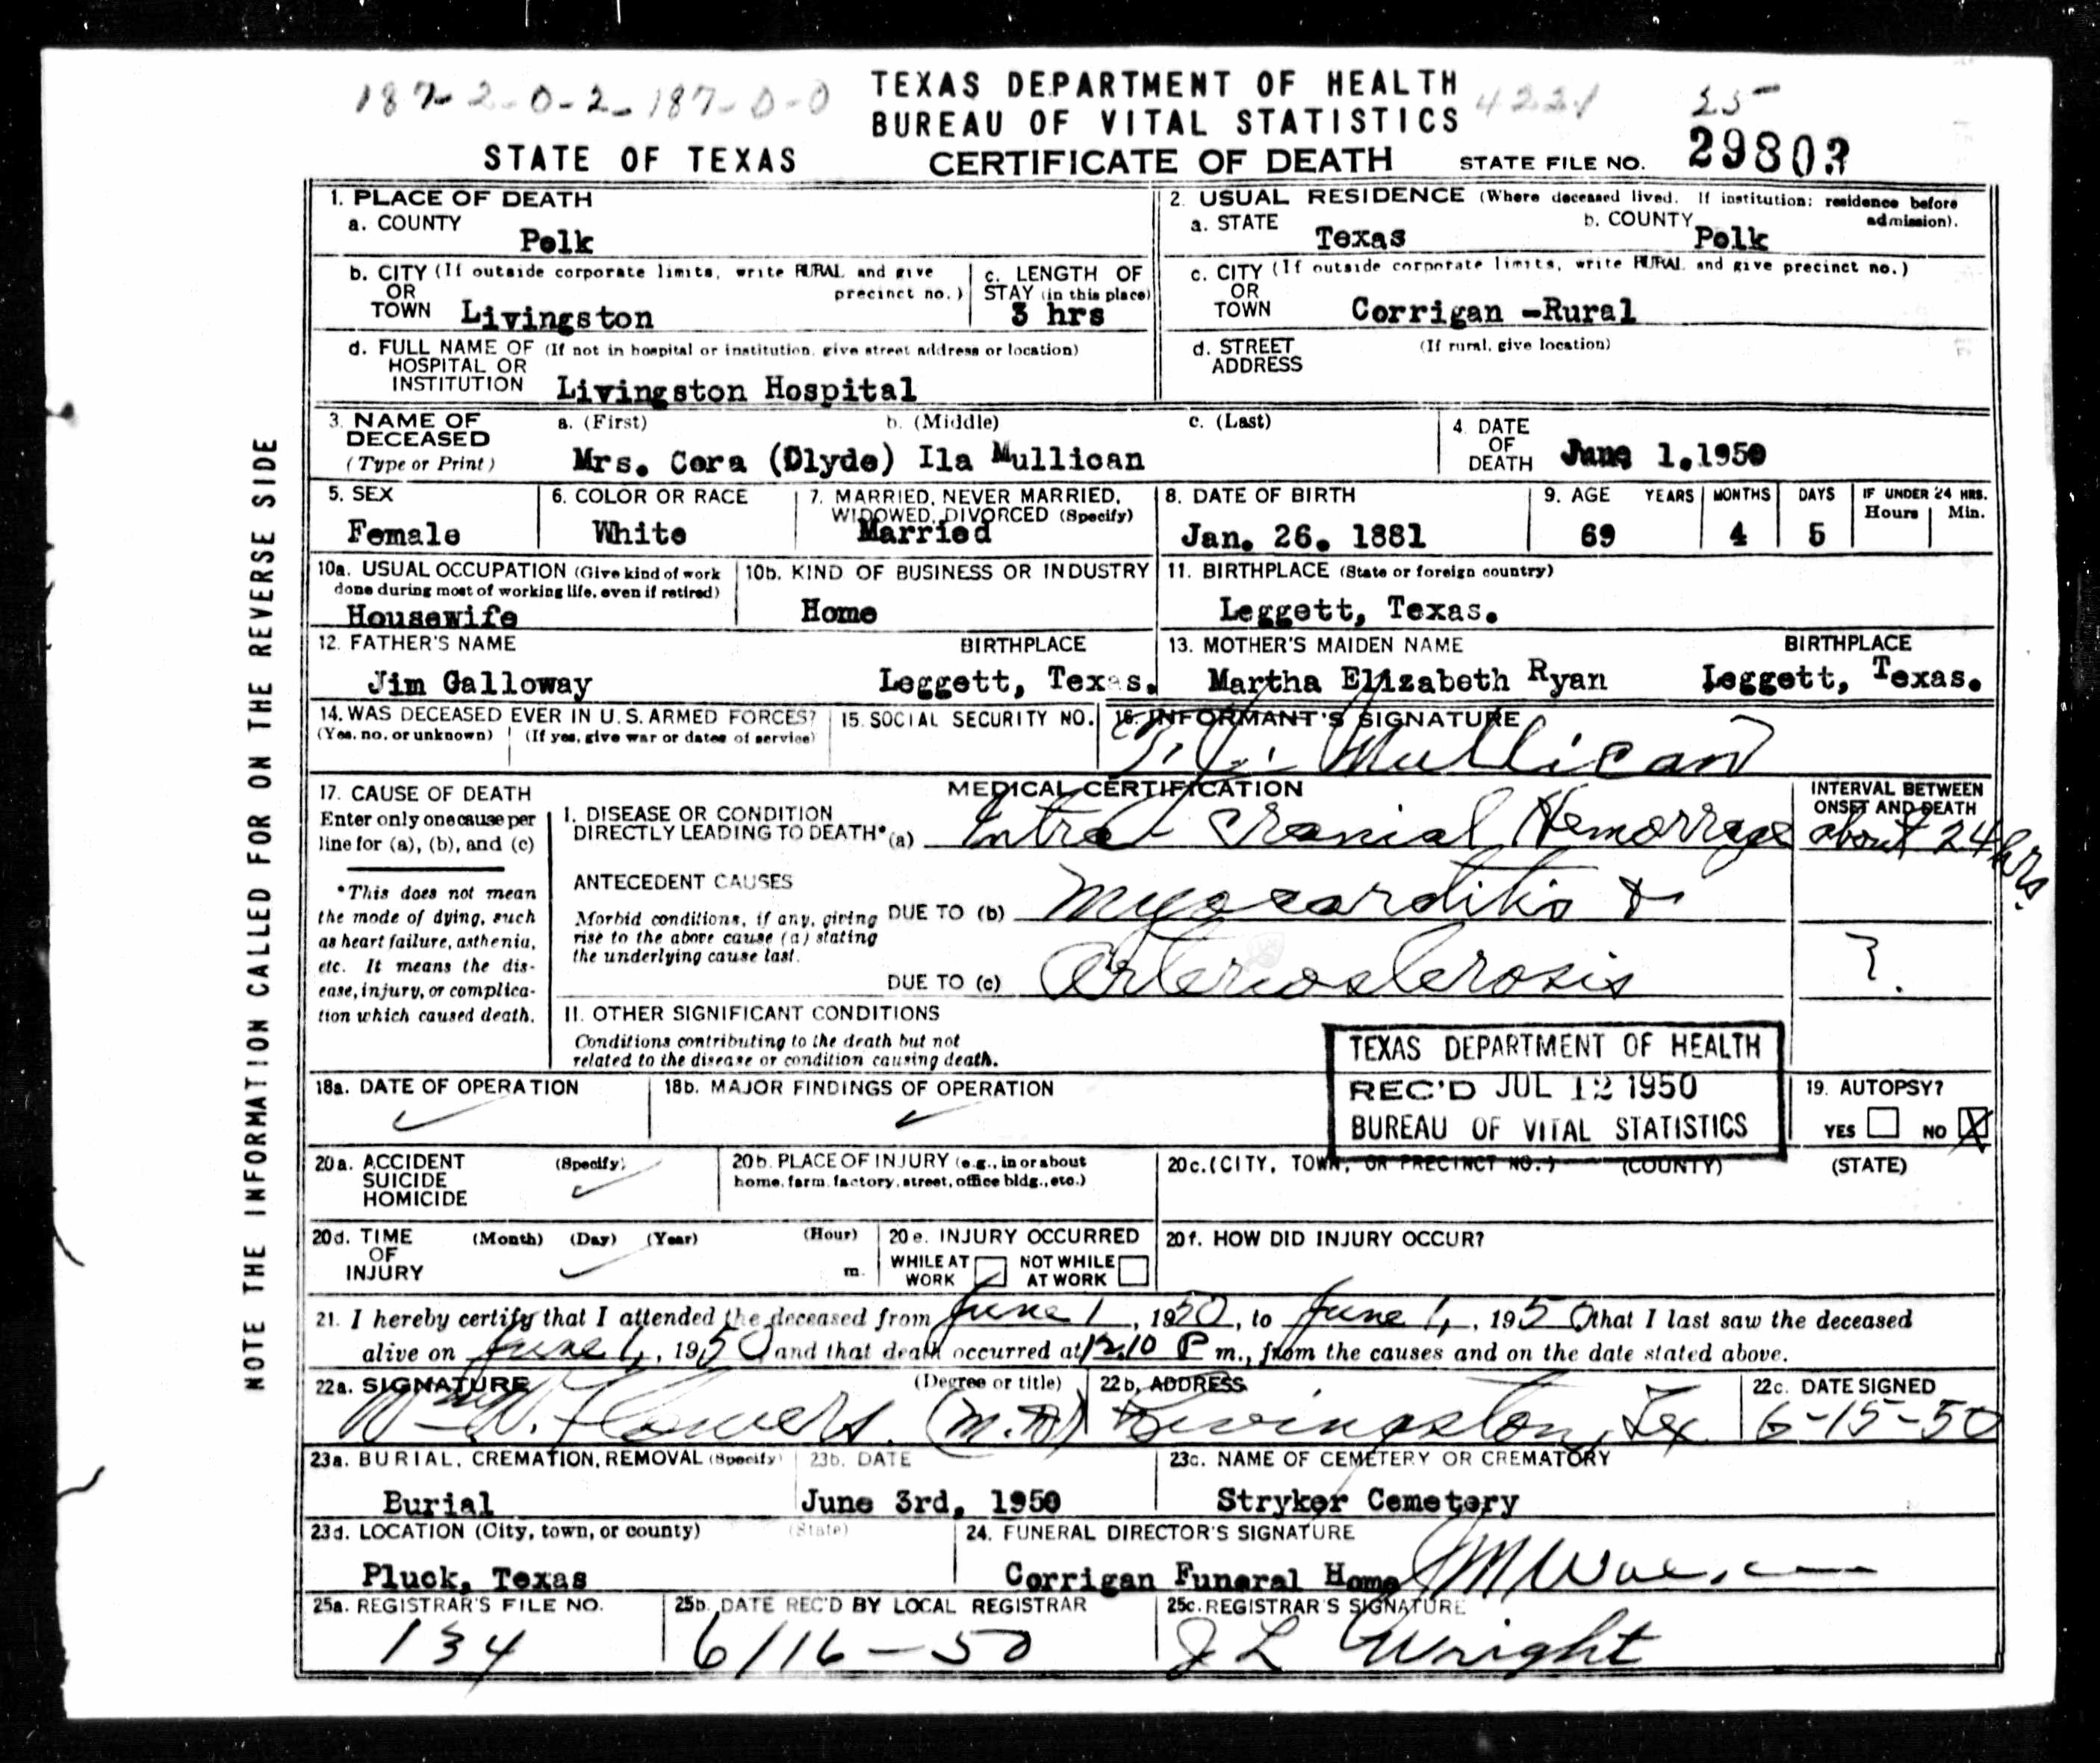 187-2-0-2-187-0-0
TEXAS DEPARTMENT OF HEALTH
BUREAU OF VITAL STATISTICS
4221
25
STATE OF TEXAS CERTIFICATE OF DEATH STATE FILE NO. 29803
NOTE THE INFORMATION CALLED FOR ON THE REVERSE SIDE
1. PLACE OF DEATH
a. COUNTY
Polk
2. USUAL RESIDENCE (Where deceased lived. If institution: residence before admission).
a. STATE Texas b. COUNTY Polk
b. CITY (If outside corporate limits, write RURAL and give
OR precinct no.)
TOWN Livingston
c. LENGTH OF
STAY (in this place)
3 hrs
c. CITY (If outside corporate limits, write RURAL and give precinct no.)
OR
TOWN Corrigan -Rural
d. FULL NAME OF (If not in hospital or institution, give street address or location)
HOSPITAL OR
INSTITUTION Livingston Hospital
d. STREET (If rural, give location)
ADDRESS
3. NAME OF a. (First) b. (Middle) c. (Last)
DECEASED
(Type or Print) Mrs. Cora (Clyde) Ila Mullican
4. DATE
OF
DEATH June 1,1950
5. SEX
Female
6. COLOR OR RACE
White
7. MARRIED, NEVER MARRIED,
WIDOWED, DIVORCED (Specify)
Married
8. DATE OF BIRTH
Jan. 26. 1881
9. AGE YEARS MONTHS DAYS IF UNDER 24 HRS.
Hours Min.
69 4 5
10a. USUAL OCCUPATION (Give kind of work
done during most of working life, even if retired)
Housewife
10b. KIND OF BUSINESS OR INDUSTRY
Home
11. BIRTHPLACE (State or foreign country)
Leggett, Texas.
12. FATHER'S NAME BIRTHPLACE
Jim Galloway Leggett, Texas.
13. MOTHER'S MAIDEN NAME BIRTHPLACE
Martha Elizabeth Ryan Leggett, Texas.
14. WAS DECEASED EVER IN U.S. ARMED FORCES?
(Yes, no, or unknown) (If yes, give war or dates of service)
15. SOCIAL SECURITY NO.
16. INFORMANT'S SIGNATURE
Mullican
MEDICAL CERTIFICATION
17. CAUSE OF DEATH
Enter only one cause per
line for (a), (b), and (c)
*This does not mean
the mode of dying, such
as heart failure, asthenia,
etc. It means the dis-
ease, injury, or complica-
tion which caused death.
I. DISEASE OR CONDITION
DIRECTLY LEADING TO DEATH* (a) Intra Cranial Hemorrage
INTERVAL BETWEEN
ONSET AND DEATH
about 24 hrs.
ANTECEDENT CAUSES
Morbid conditions, if any, giving
rise to the above cause (a) stating
the underlying cause last.
DUE TO (b) Myocarditis &
DUE TO (c) Arteriosclerosis
?
II. OTHER SIGNIFICANT CONDITIONS
Conditions contributing to the death but not
related to the disease or condition causing death.
TEXAS DEPARTMENT OF HEALTH
REC'D JUL 12 1950
BUREAU OF VITAL STATISTICS
18a. DATE OF OPERATION
18b. MAJOR FINDINGS OF OPERATION
19. AUTOPSY?
YES NO X
20a. ACCIDENT (Specify)
SUICIDE
HOMICIDE
20b. PLACE OF INJURY (e.g., in or about
home, farm, factory, street, office bldg., etc.)
20c. (CITY, TOWN, OR PRECINCT NO.) (COUNTY) (STATE)
20d. TIME (Month) (Day) (Year) (Hour)
OF
INJURY m.
20e. INJURY OCCURRED
WHILE AT NOT WHILE
WORK AT WORK
20f. HOW DID INJURY OCCUR?
21. I hereby certify that I attended the deceased from June 1, 1950, to June 1, 1950 that I last saw the deceased
alive on June 1, 1950 and that death occurred at 12:10 P m., from the causes and on the date stated above.
22a. SIGNATURE (Degree or title)
Wm W. Flowers. (M.D.)
22b. ADDRESS
Livingston, Tex
22c. DATE SIGNED
6-15-50
23a. BURIAL, CREMATION, REMOVAL (Specify)
Burial
23b. DATE
June 3rd, 1950
23c. NAME OF CEMETERY OR CREMATORY
Stryker Cemetery
23d. LOCATION (City, town, or county) (State)
Pluck, Texas
24. FUNERAL DIRECTOR'S SIGNATURE
Corrigan Funeral Home
25a. REGISTRAR'S FILE NO.
134
25b. DATE REC'D BY LOCAL REGISTRAR
6/16-50
25c. REGISTRAR'S SIGNATURE
J L Wright